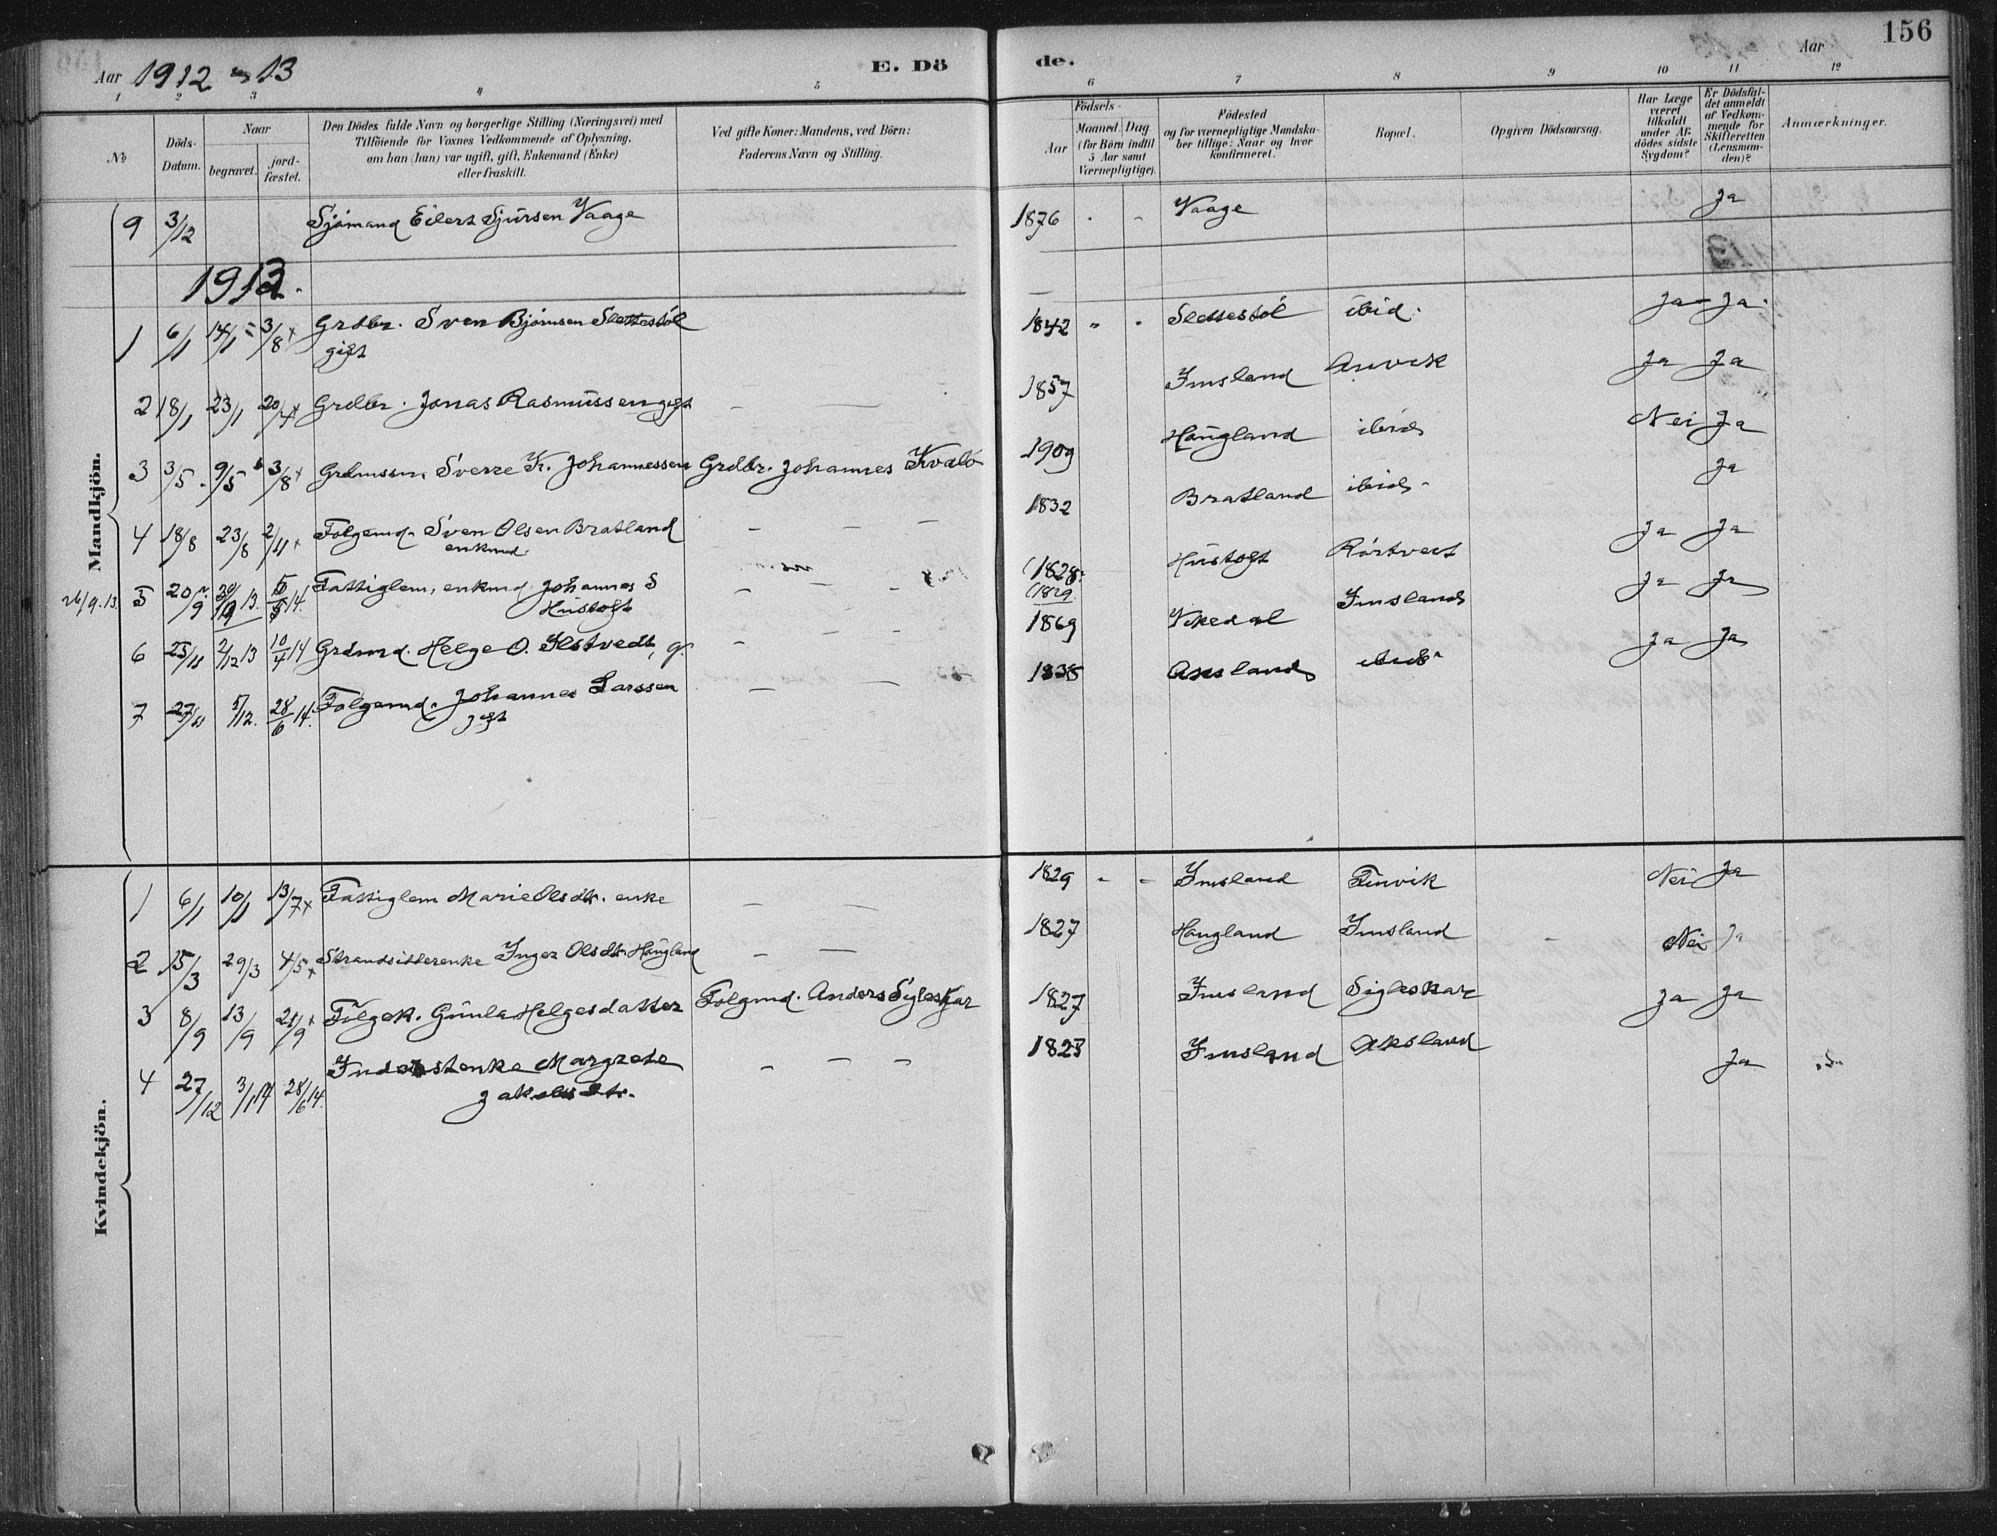 156
Aar 1912 og 13
E. Dö
de.
Aar
1 2 3 4 5
6 7 8 9 10 11 12
No
Döds-Datum.
Naar
begravet.
jord-fæstet.
Den Dödes fulde Navn og borgerlige Stilling (Næringsvei) med
Tilföiende for Voxnes Vedkommende af Oplysning,
om han (hun) var ugift, gift, Enkemand (Enke)
eller fraskilt.
Ved gifte Koner: Mandens, ved Börn:
Faderens Navn og Stilling.
Födsels-
Aar
Maaned. Dag
(for Börn indtil
5 Aar samt
Værnepligtige).
Födested
og for værnepligtige Mandska-
ber tillige: Naar og hvor
konfirmeret.
Bopæl.
Opgiven Dödsaarsag.
Har Læge
været
tilkaldt
under Af-
dödes sidste
Sygdom?
Er Dödsfal-
det anmeldt
af Vedkom-
mende for
Skifteretten
(Lensman-
den)?
Anmærkninger.
Mandkjön.
9 3/12 Sjömand Eilert Sjursen Vaage 1876 Vaage Ja
1913.
1 6/1 14/1 3/8 Grdbr. Sven Björnsen Slettestöl 1842 Slettestöl ibid. Ja Ja
gift
2 18/1 23/1 20/4 Grdbr. Jonas Rasmussen gift 1857 Imsland Ja Ja
3 3/5 9/5 3/8 Grdmssn. Sverre Kr. Johannessen Grdbr. Johannes 1909 Haugland ibid Nei Ja
4 18/8 23/8 2/11 Folgemd. Sven Olsen Bratland 1832 Bratland ibid. Ja
enkmd.
26/9.13. 5 20/9 13. 14. Fattiglem, enkmd Johannes S 1828 Hustoft Rörtveit Ja Ja
Hustoft (1829.
6 25/11 2/12 13 10/4 14 Grdmd. Helge O. Ilstvedt, g. 1869 Vikedal Imsland Ja Ja
7 27/11 5/12. 28/6 14. Folgemd. Johannes Larssen 1838 Axsland ibid Ja Ja
gift
Kvindekjön.
1 6/1 10/1 13/7 Fattiglem Marie Olsdtr. enke 1829 Imsland Finvik Nei Ja
2 15/3 29/3 4/5 Strandsidderenke Inger Olsdtr. Haugland 1827 Haugland Imsland Nei Ja
3 8/9 13/9 21/9 Folgek. Gunla Helgesdatter Folgmd. Anders Sigleskar 1827 Imsland Sigleskar Ja Ja
4 27/12 3/1 14 28/6 14. Inderstenke Margrete 1823 Imsland Aksland Ja
Jakobsdtr.